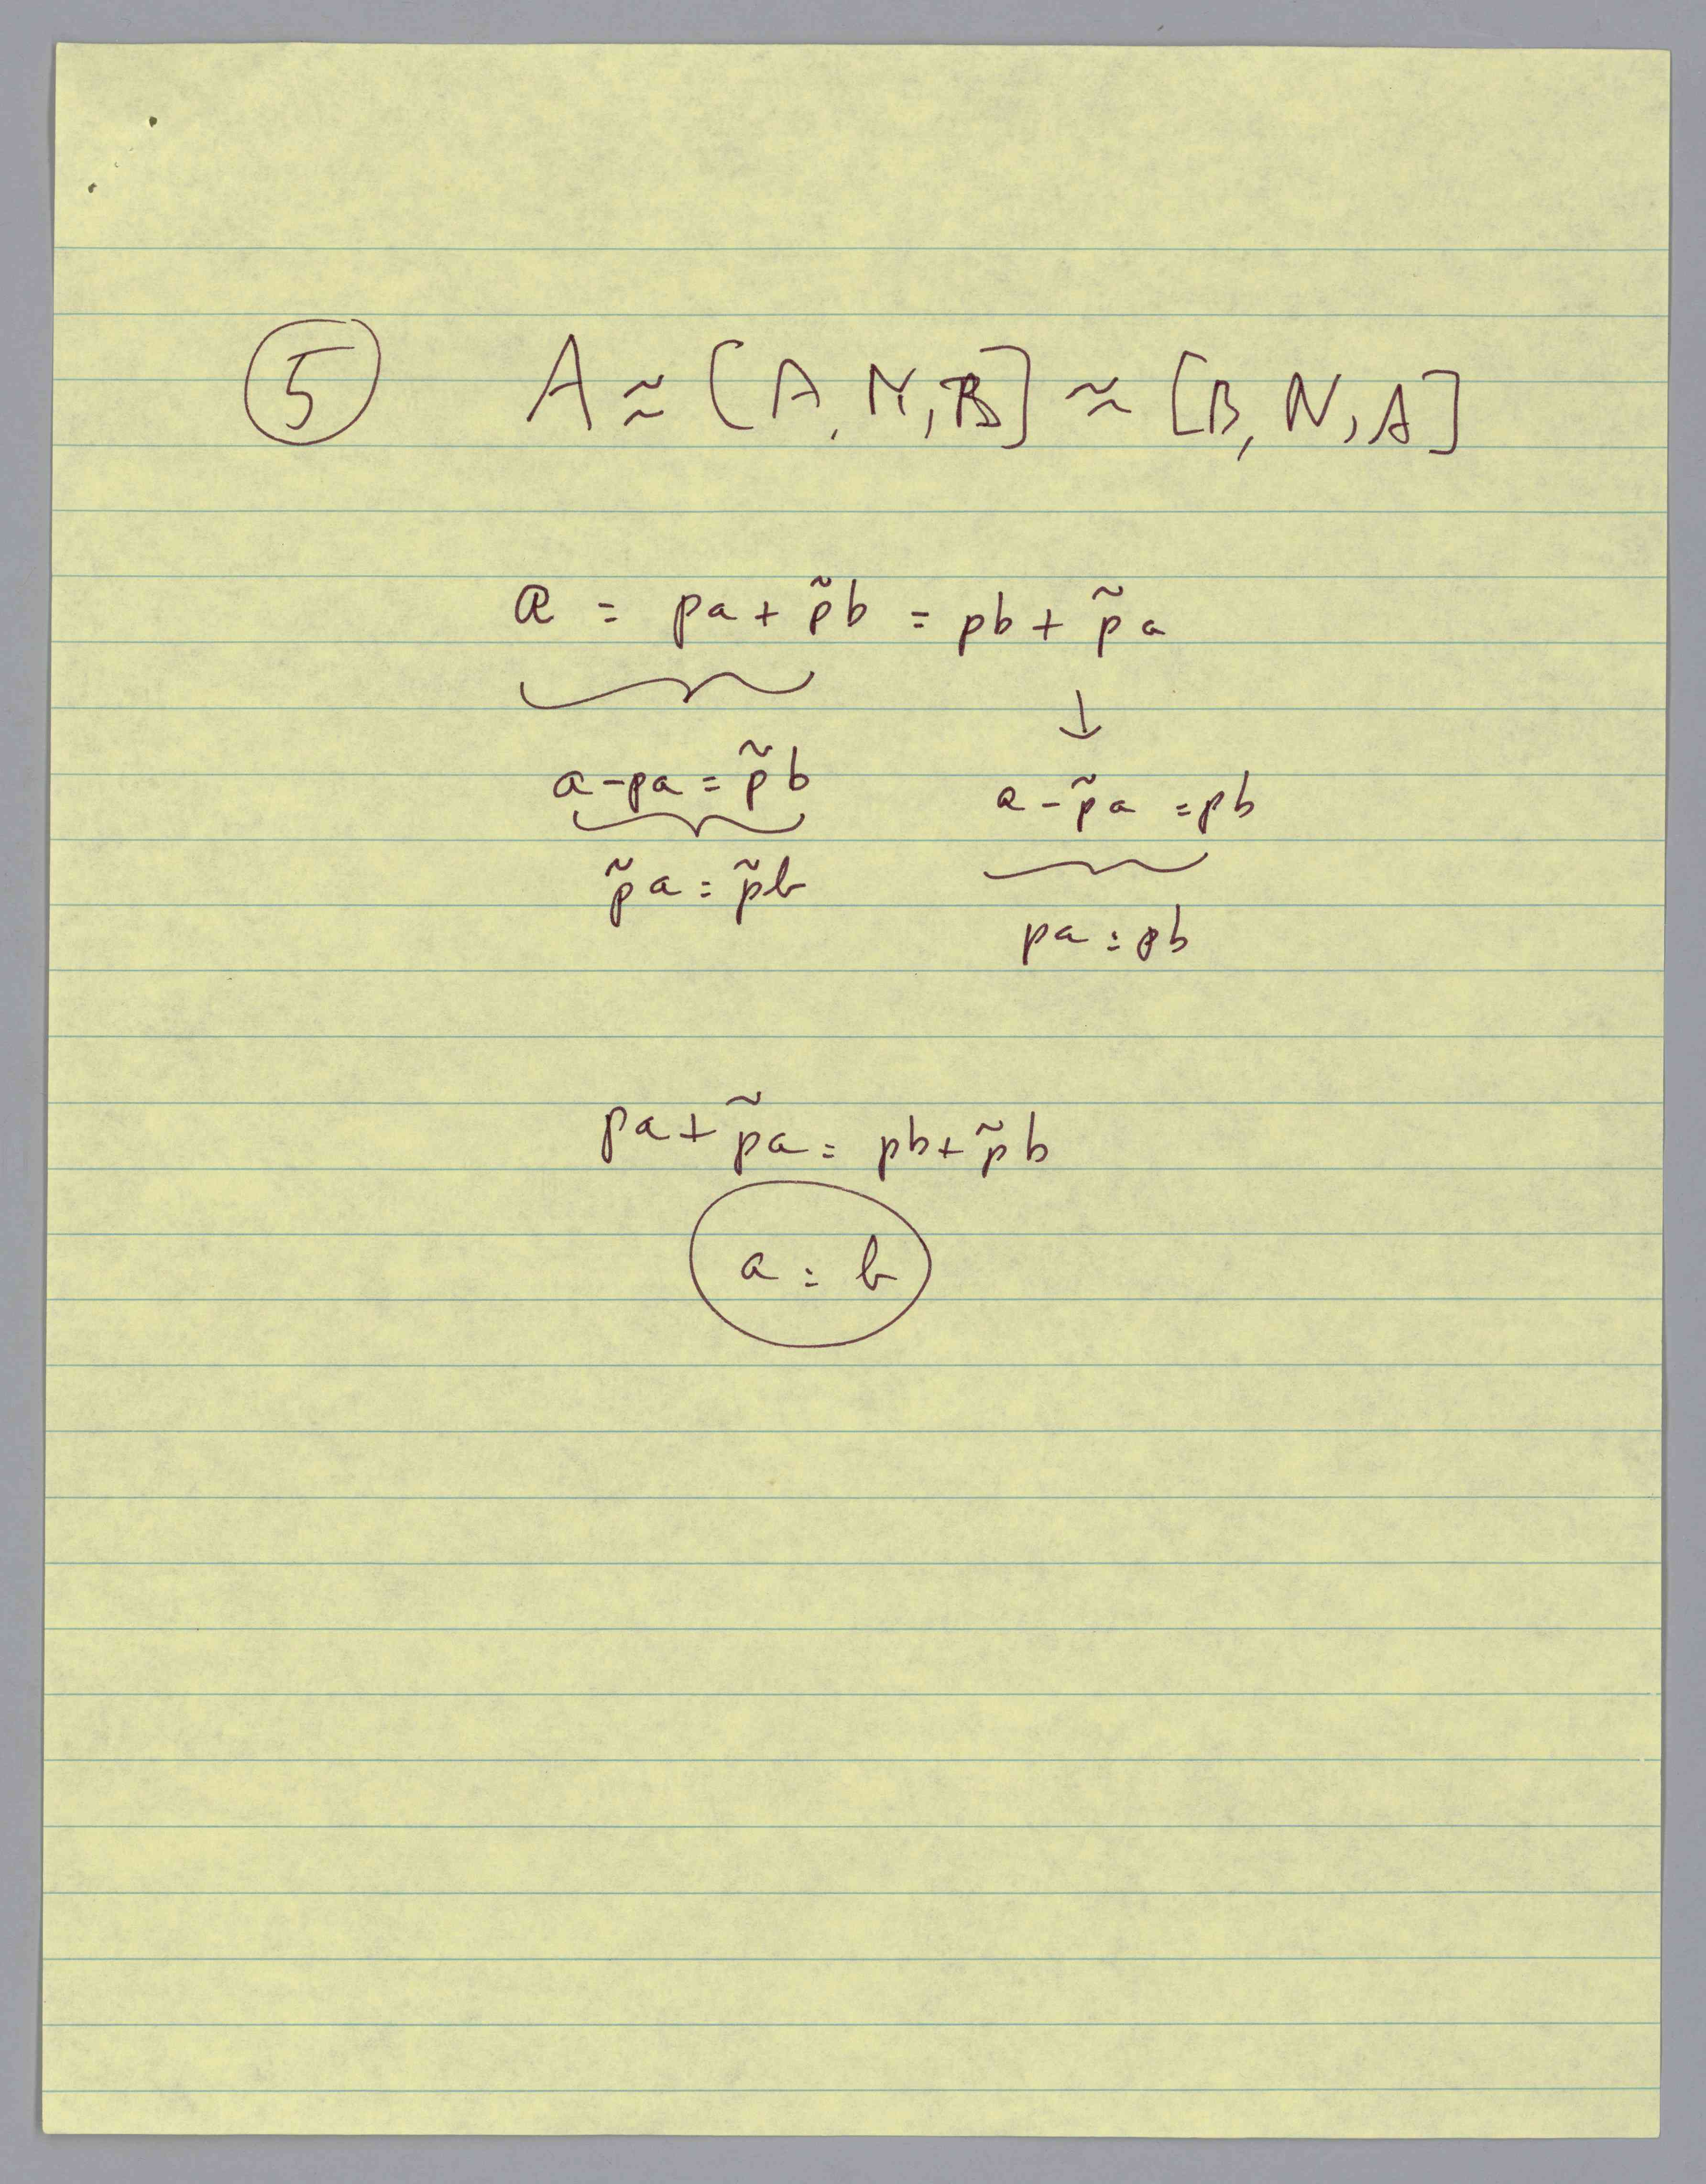 ⑤ A ≈ [A, N, B] ≈ [B, N, A]
a = pa + p̃b = pb + p̃a
↓
a - pa = p̃b a - p̃a = pb
p̃a = p̃b
pa = pb
pa + p̃a = pb + p̃b
a = b